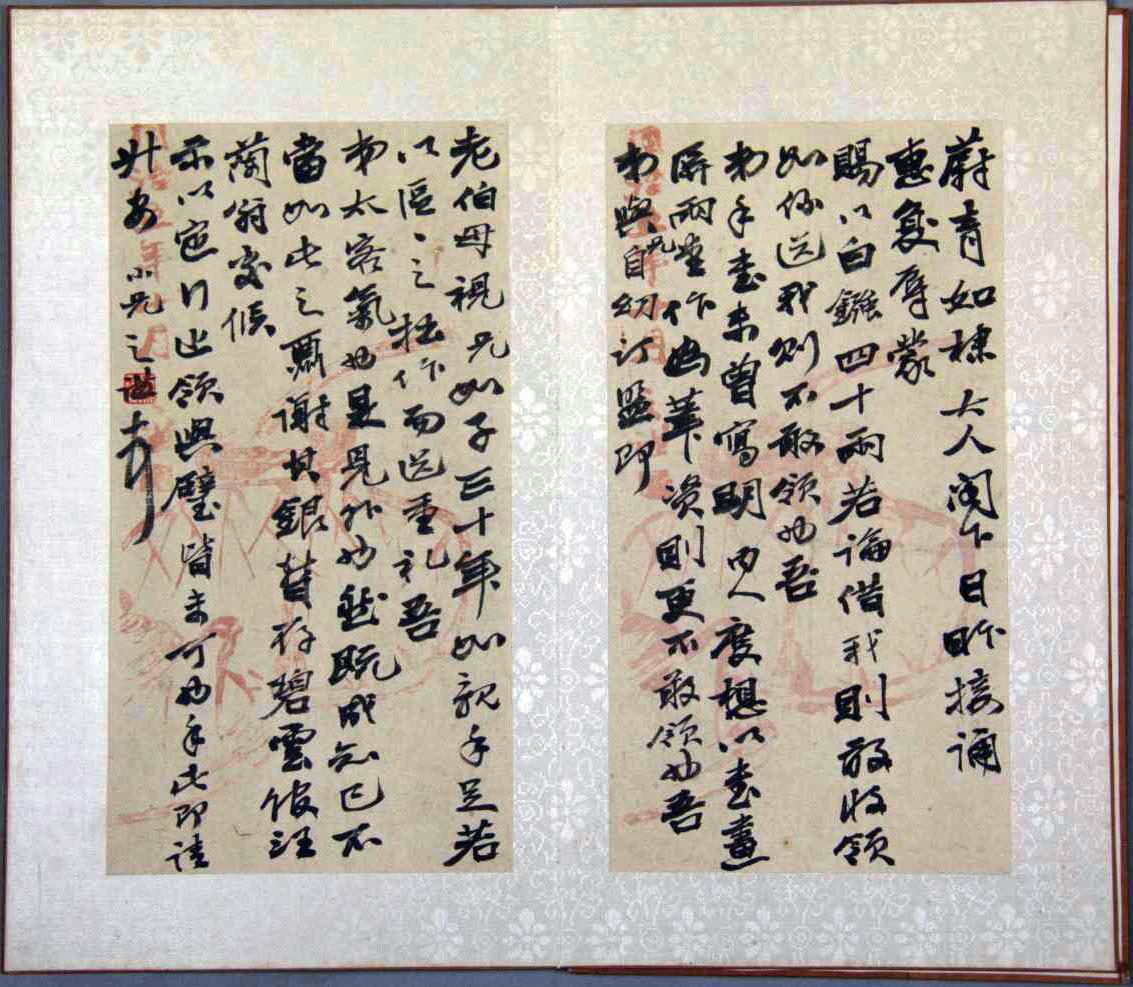 蔚青如棣大人阁下日昨接诵
惠复辱蒙
賜以白鏹四十兩若論借我則敢收領
如係送我則不敢領也吾
弟手書未曾寫明內人度想以書畫
屏兩堂作為筆資則更不敢領也吾
弟與兄自幼訂盟即
老伯母視兄如子三十年如親手足若
以區區之拙作而送重礼吾
弟太客氣也是見外也然既成知己不
當如此之 謝其銀暫存碧雲館註
蘭翁安候
示以定行止領與璧皆未可也手此即請
升安 小兄之謙頓